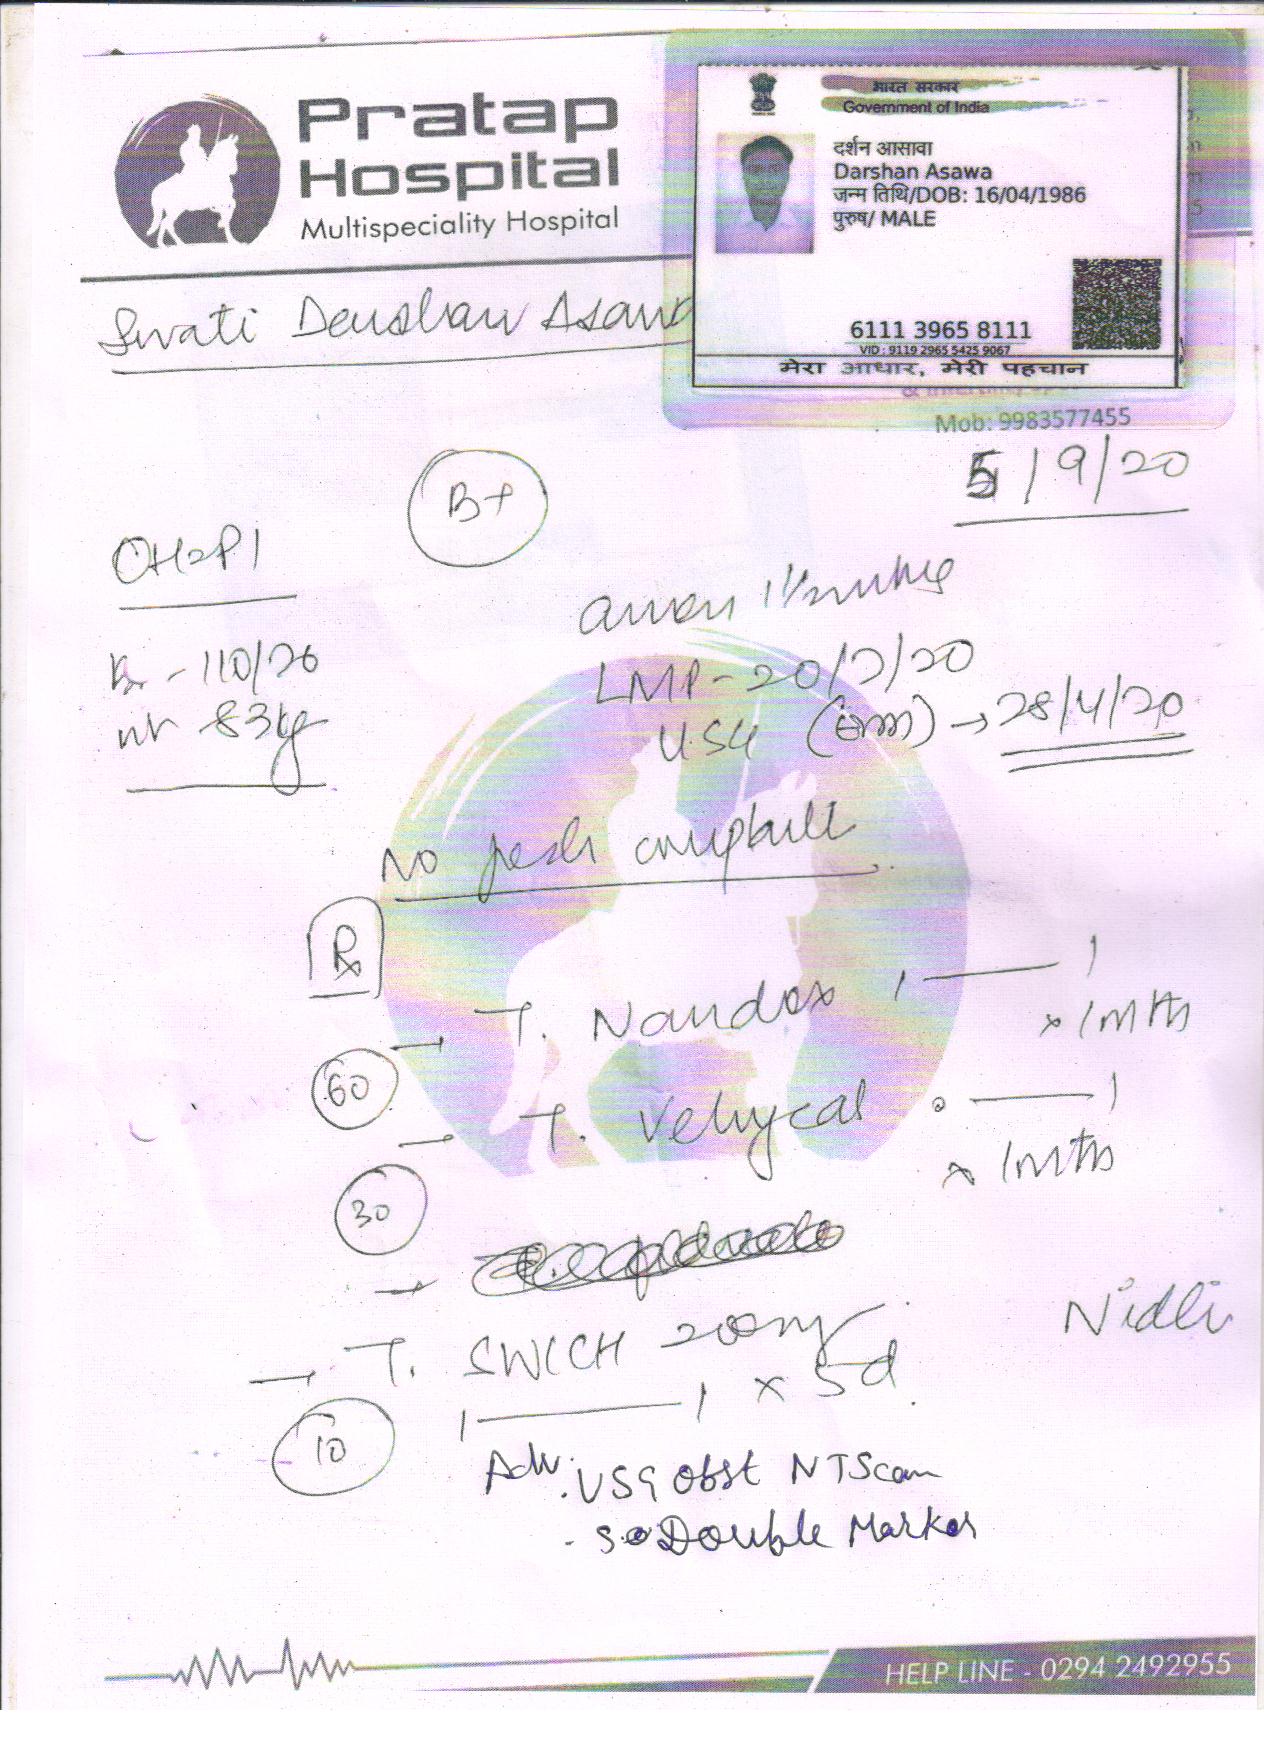 Pratap
Hospital
Multispeciality Hospital
भारत सरकार
Government of India
दर्शन आसावा
Darshan Asawa
जन्म तिथि/DOB: 16/04/1986
पुरुष/ MALE
6111 3965 8111
VID : 9119 2965 5425 9067
मेरा आधार, मेरी पहचान
Mob: 9983577455
Swati Darshan Asawa
5/9/20
B+
LMP - 20/2/20
USG → 28/4/20
110/76
wt 83kg
No fresh complaint
Rx
T. 1 — 1
x 1mth
60
T. 0 — 1
x 1mth
30
T. SWICH 200mg
1 — 1 x 5d
10
Nidhi
Adv. USG Obst NT Scan
- S. Double Marker
HELP LINE - 0294 2492955